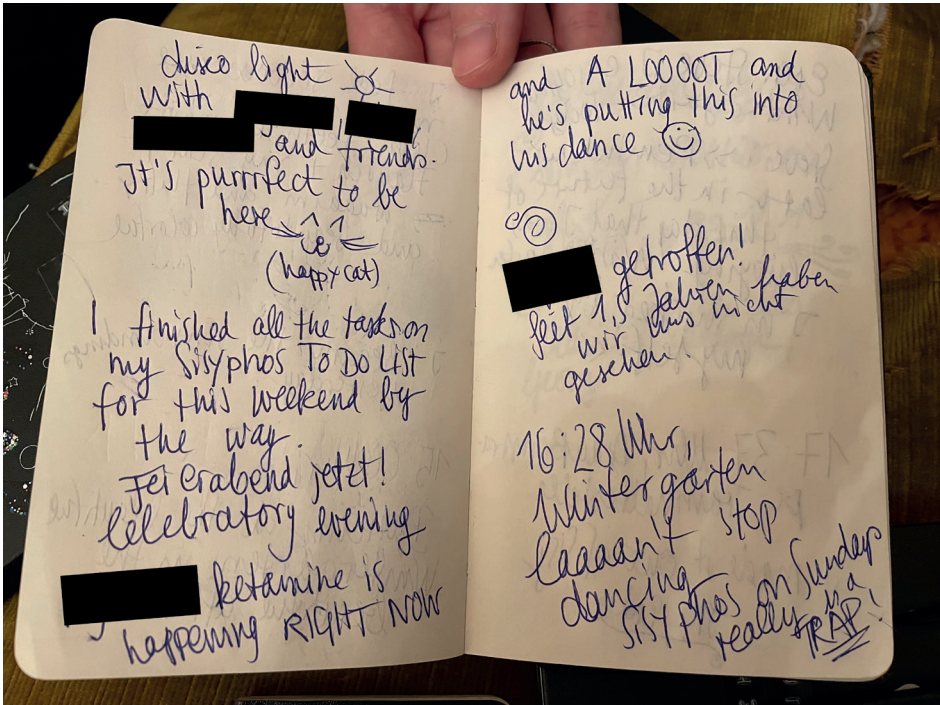 disco light
with
and friends.
It's purrrfect to be
here
(happy cat)
I finished all the tasks on
my Sisyphos TO DO LIST
for this weekend by
the way.
Feierabend jetzt!
Celebratory evening
ketamine is
happening RIGHT NOW
and A LOOOOT and
he's putting this into
his dance
getroffen!
seit 1,5 Jahren haben
wir uns nicht
gesehen.
16:28 Uhr,
Wintergarten
Caaaan't stop
dancing
Sisyphos on Sundays
really is a
TRAP!